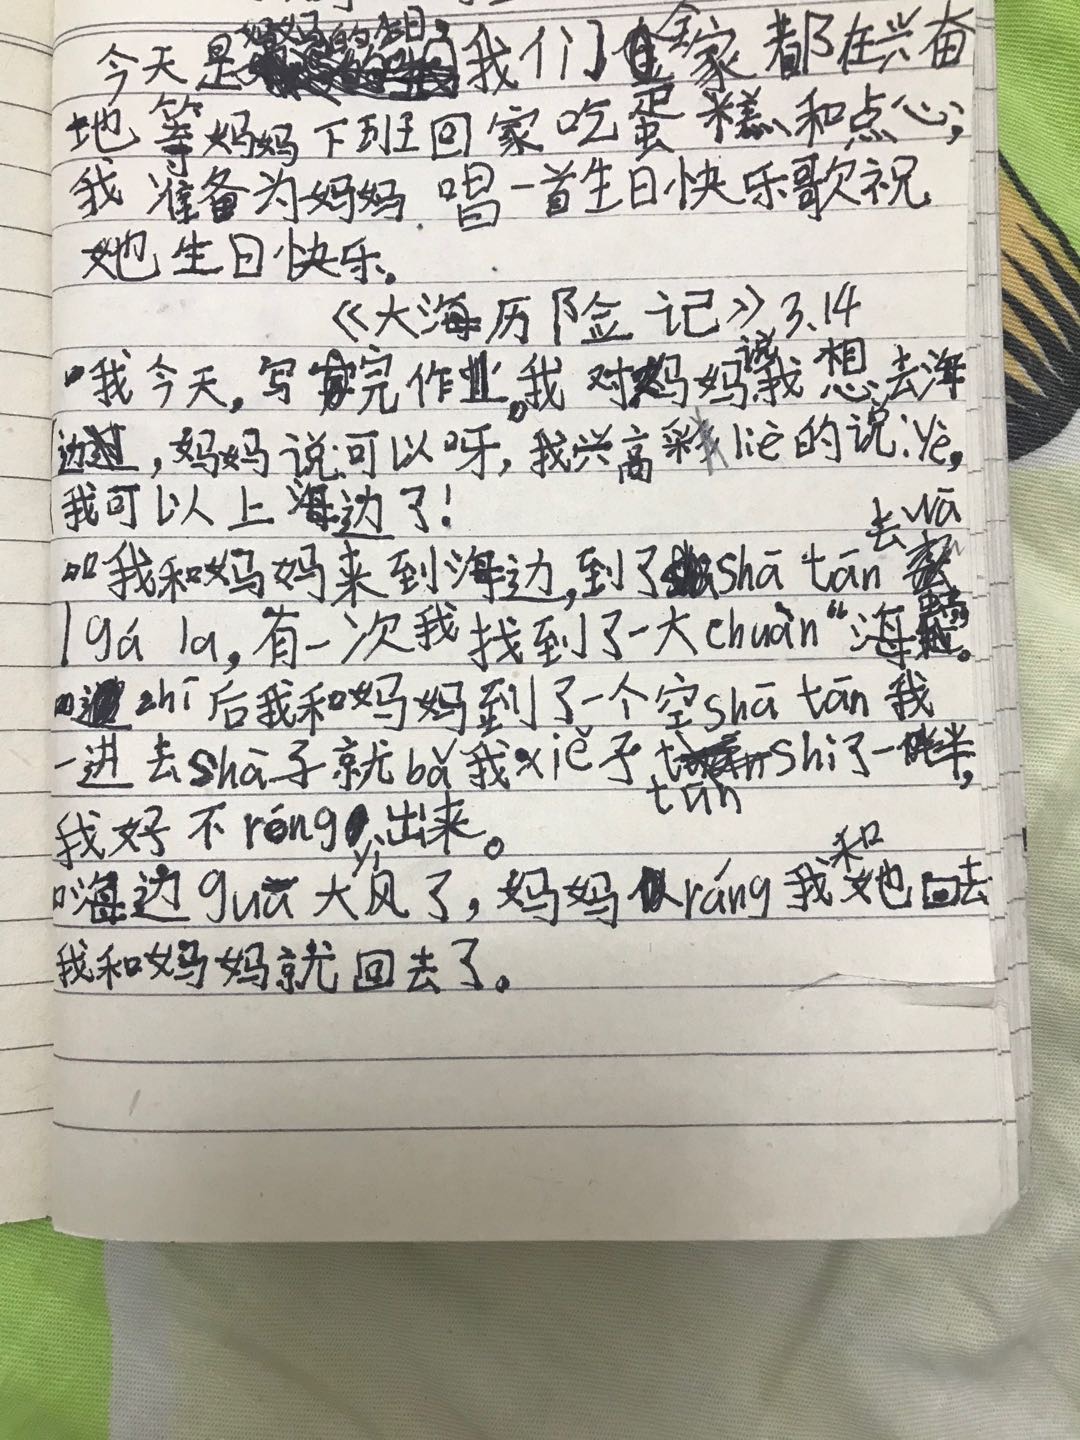 今天是妈妈的生日,我们全家都在兴奋
地等妈妈下班回家吃蛋糕和点心,
我准备为妈妈唱一首生日快乐歌祝
她生日快乐。
《大海历险记》3.14
我今天,写完作业。我对妈妈说我想去海
边,妈妈说:可以呀,我兴高采liè的说:Yè,
我可以上海边了!
我和妈妈来到海边,到了shā tān去wā
gá la,有一次我找到了一大chuàn“海
zhī后我和妈妈到了一个空shā tān我
一进去shā子就bǎ我xiě子tān shi了一半,
我好不róng yì出来。
海边guā大风了,妈妈ráng我和她回去
我和妈妈就回去了。